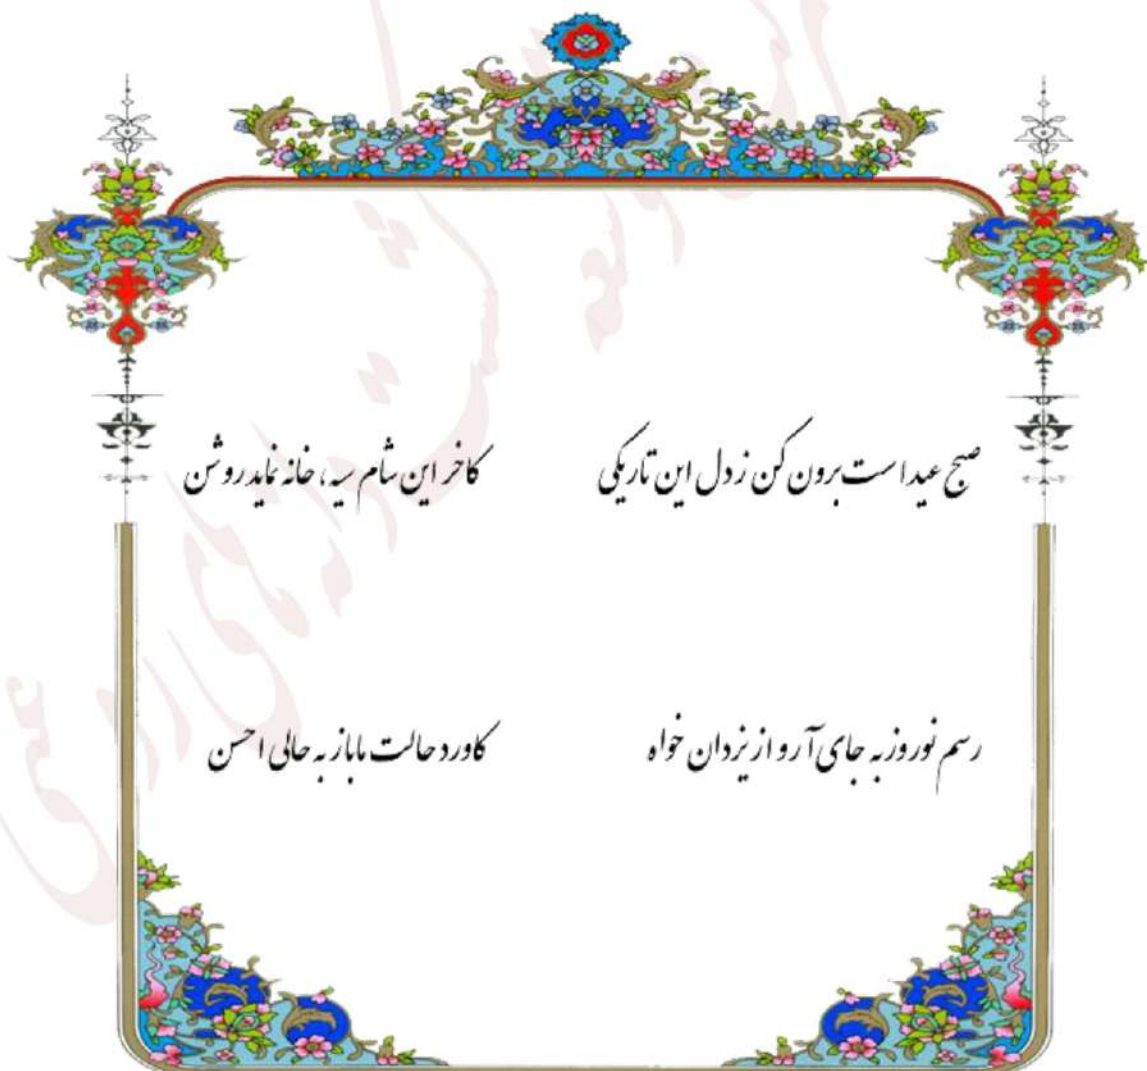 صبح عید است برون کن ز دل این تاریکی کاخر این شام سیه، خانه نماید روشن
رسم نوروز به جای آر و از یزدان خواه کاورد حالت ما باز به حالی احسن